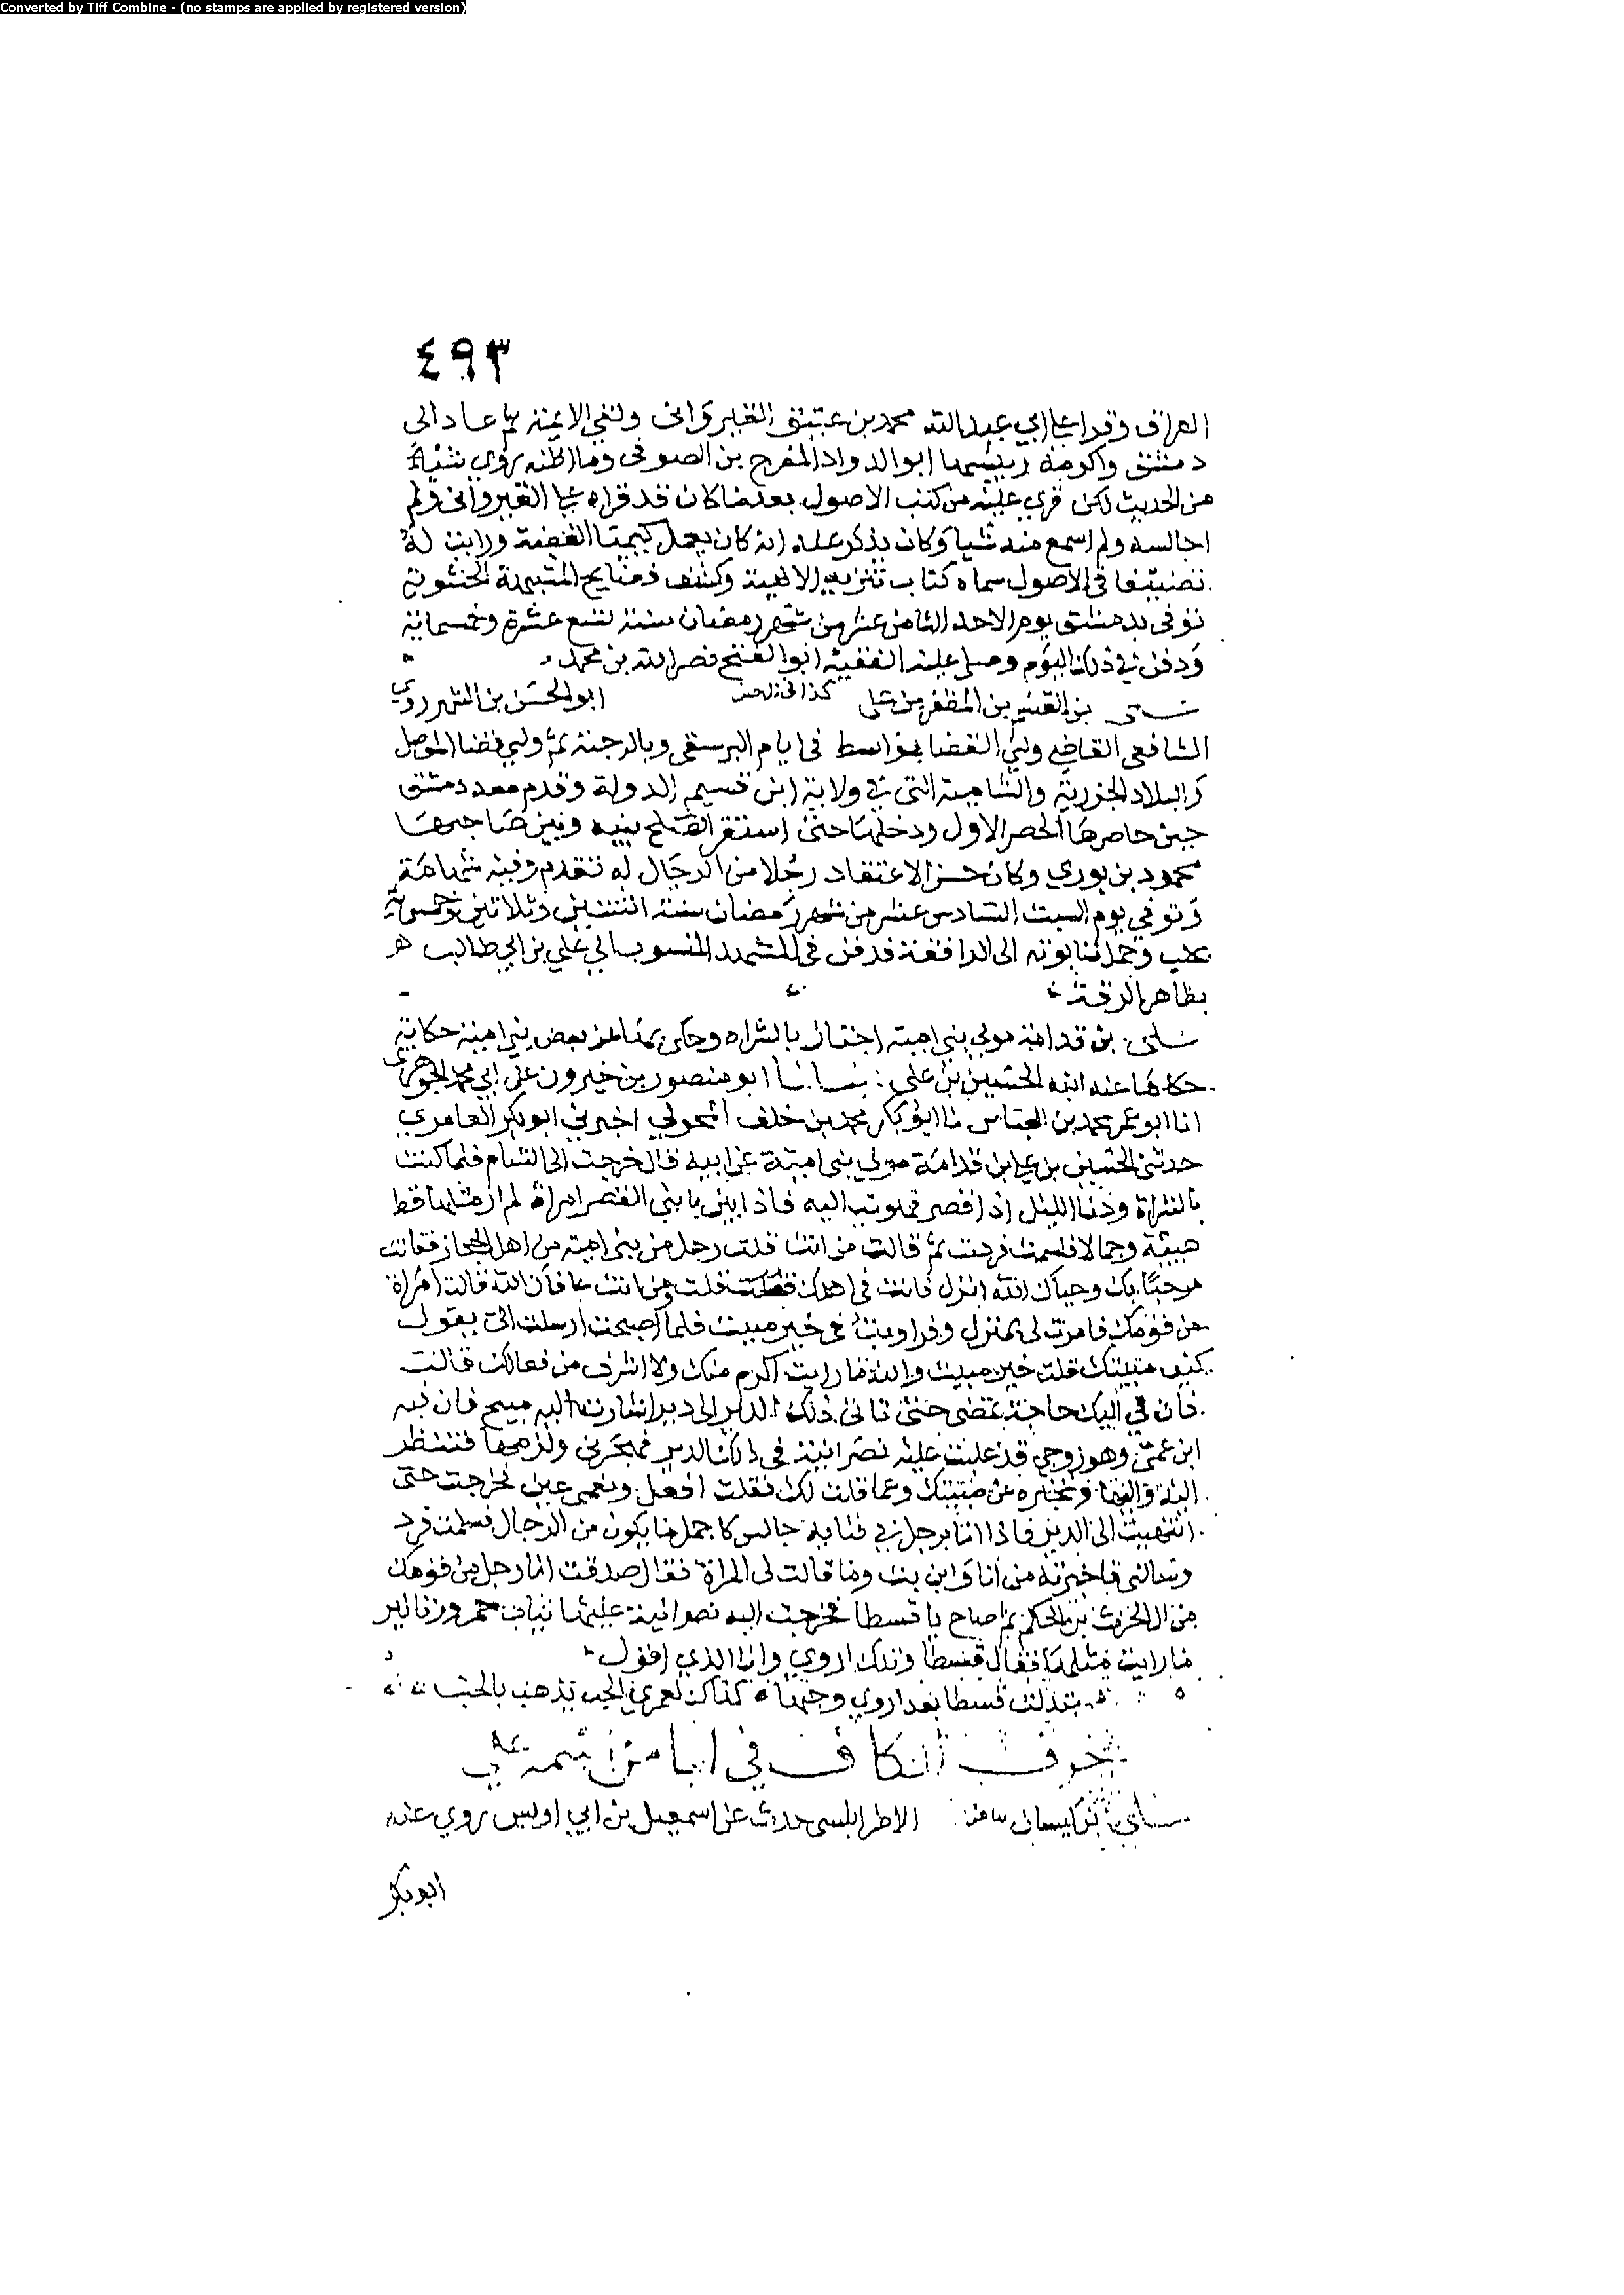 Converted by Tiff Combine - (no stamps are applied by registered version)
٤٩٣
العراق وقرا على ابي عبد الله محمد بن عتيق القيرواني ولقي الايمة ثم عاد الى
دمشق واكرمه رييسها ابو الدواد المفرح بن الصوفي وما اظنه روي شيا
من الحديث لكن قري عليه من كتب الاصول بعضا كان قد قراه على القيرواني ولم
اجالسه ولم اسمع منه شيا وكان يذكر عنه انه كان يعمل كيميا الفضة ورايت له
تصنيفا في الاصول سماه كتاب تنزيه الالهية وكشف فضايح المشبهة الحشوية
توفي بدمشق يوم الاحد الثامن عشر من شهر رمضان سنة تسع عشرة وخمسماية
ودفن في ذلك اليوم وصلى عليه الفقيه ابو الفتح نصر الله بن محمد
بن القسم بن المظفر بن علي كذا في الاصل ابو الحسن بن الشهرزوري
الشافعي القاضي ولي القضا بواسط في ايام البرسقي وبالرحبة ثم ولي قضا الموصل
والبلاد الجزرية والشامية التي في ولاية ابن قسيم الدولة وقدم معه دمشق
حين حاصرها الحصر الاول ودخلها حتى استقر الصلح بينه وبين صاحبها
محمود بن بوري وكان حسن الاعتقاد رجلا من الرجال له تقدم وفيه شهامة
وتوفي يوم السبت السادس عشر من شهر رمضان سنة اثنتين وثلاثين وخمسماية
بحلب وحمل تابوته الى الرافقة فدفن في المشهد المنسوب الى علي بن ابي طالب
بظاهر الرقة
علي بن قدامة مولى بني امية اجتاز بالشراه وحكى بها عن بعض بني امية حكاية
حكاها عنه ابنه الحسين بن علي ابو منصور بن خيرون عن ابي محمد الجوهري
انا ابو عمر محمد بن العباس نا ابو بكر محمد بن خلف المحولي اخبرني ابو بكر العامري
حدثني الحسين بن علي بن قدامة مولى بني امية عن ابيه قال خرجت الى الشام فلما كنت
بالشراة ودنا الليل اذا قصر فهويت اليه فاذا بين بابي القصر امراة لم ار مثلها قط
هيئة وجمالا فسلمت فردت ثم قالت من انت قلت رجل من بني امية من اهل الحجاز فقالت
مرحبا بك وحياك الله انزل فانت في اهلك قلت ومن انت عافاك الله قالت امراة
من قومك فامرت لي بمنزل وقرا وبت في خير مبيت فلما اصبحت ارسلت الي يقول
كيف مبيتك قلت خير مبيت والله ما رايت اكرم منك ولا اشرف من فعالك قالت
فان لي اليك حاجة تمضي حتى تاتي ذلك الدير الى دير اشارت اليه فان فيه
ابن عمي وهو زوجي قد غلبت عليه نصرانية في ذلك الدير فهجرني ولزمها فتنظر
اليه واليها وتخبره عن مبيتك وعما قلت لك فقلت افعل ونعمى عين فخرجت حتى
انتهيت الى الدير فاذا انا برجل في فنايه جالس كاجمل ما يكون من الرجال فسلمت فرد
وسالني فاخبرته من انا واين بت وما قالت لي المراة فقال صدقت انا رجل من قومك
من ال الحرث بن الحكم ثم صاح يا قسطا فخرجت اليه نصرانية عليها ثياب حمر وزنانير
ما رايت مثلها فقال قسطا وتلك اروي وانا الذي اقول
بتدلت قسطا بعد اروي وحبها كذاك لعمري الحب يذهب بالحب
بن كيسان الاطرابلسي حدث عن اسمعيل بن ابي اويس روي عنه
ابو بكر